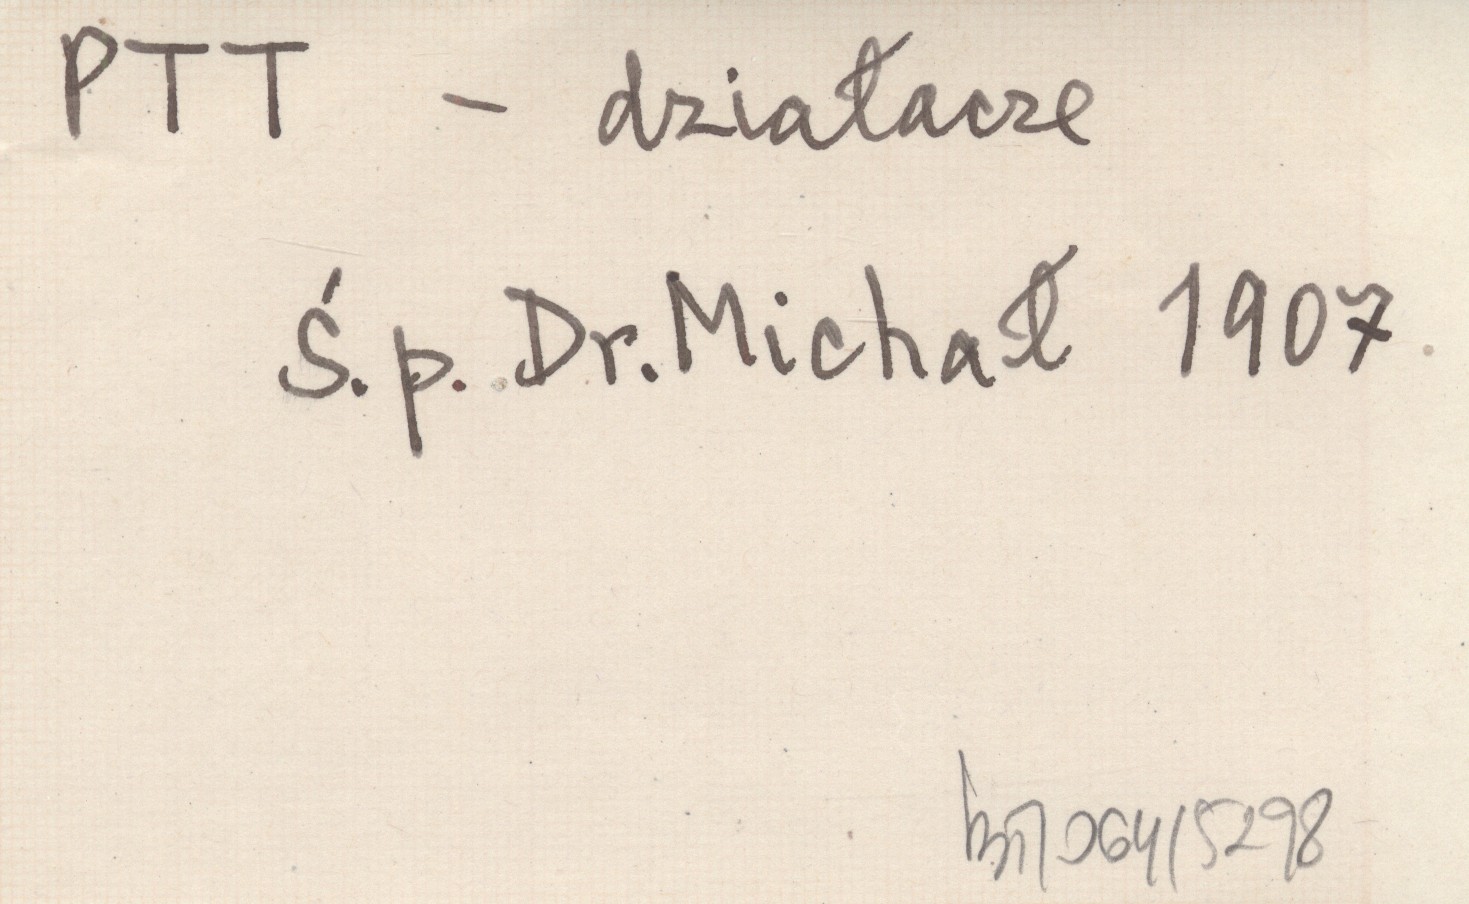 PTT - działacze
Ś.p. Dr. Michał 1907
064/5298